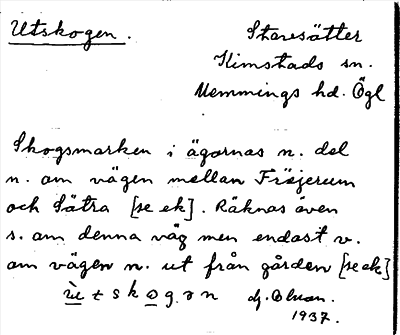 Utskogen.
Staresätter
Kimstads sn.
Memmings hd. Ögl
Skogsmarken i ägornas n. del
n. om vägen mellan Fröjerum
och Sätra [se ek]. Räknas även
s. om denna väg men endast v.
om vägen n. ut från gården [se ek]
dj. Oluan.
1937.